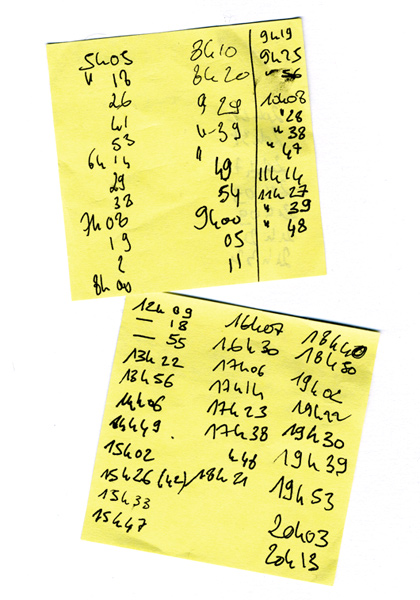 5h05
" 18
26
41
53
6h14
29
38
7h08
19
2
8h00
8h10
8h20
9 29
" 39
" 49
54
9h00
05
11
9h19
9h25
" 56
10h08
" 28
" 38
" 47
11h14
11h27
" 39
" 48
12h09
— 18
— 55
13h22
13h56
14h06
14h49
15h02
15h26 (42)
15h33
15h47
16h07
16h30
17h06
17h14
17h23
17h38
" 48
18h21
18h40
18h50
19h02
19h22
19h30
19h39
19h53
20h03
20h13